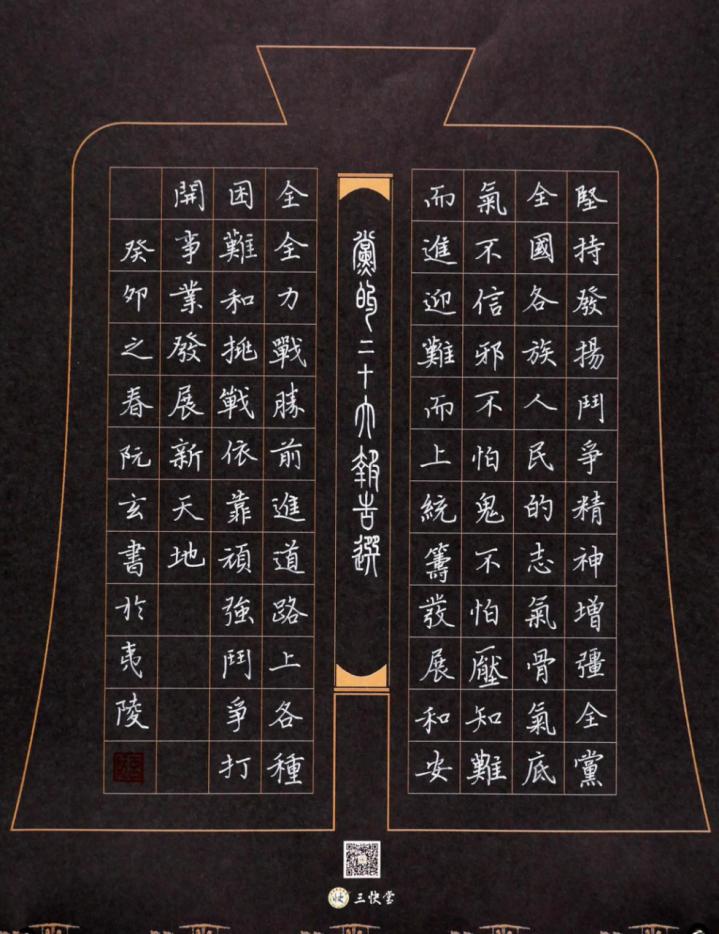 堅持發揚鬥爭精神增彊全黨
全國各族人民的志氣骨氣底
氣不信邪不怕鬼不怕壓知難
而進迎難而上統籌發展和安
黨的二十大報告選
全全力戰勝前進道路上各種
困難和挑戰依靠頑強鬥爭打
開事業發展新天地
癸卯之春阮玄書於夷陵
三快堂